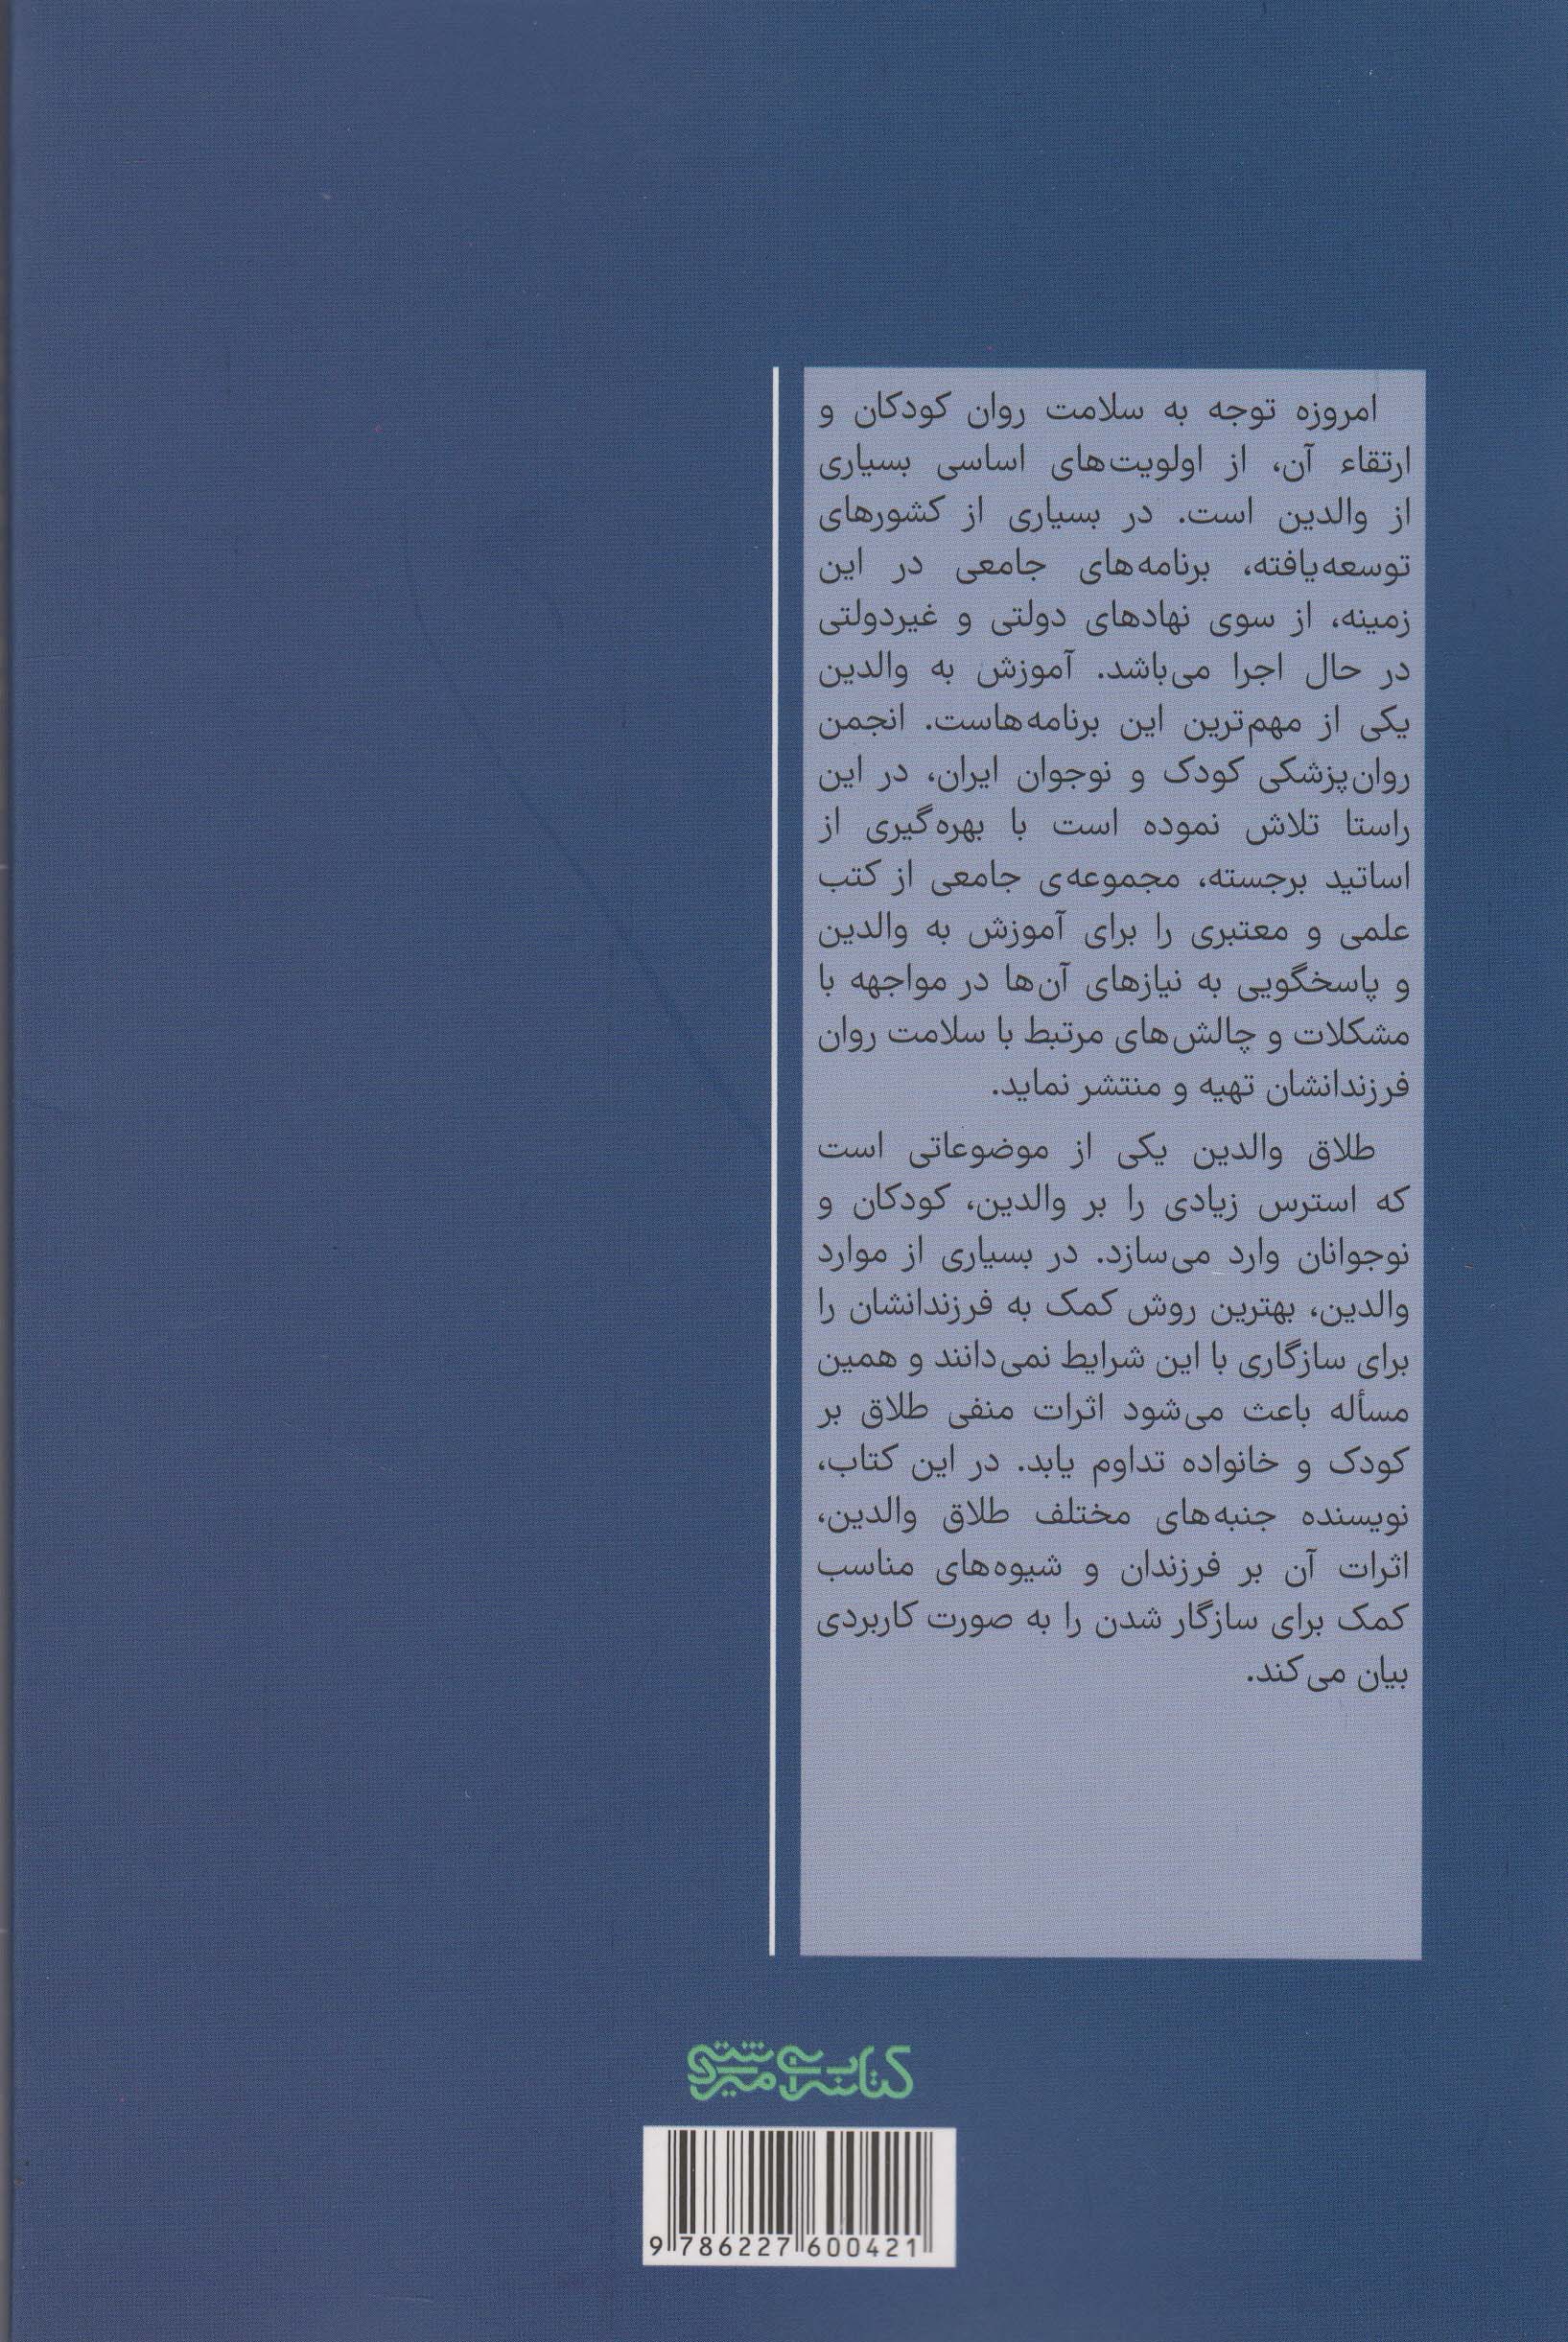 امروزه توجه به سلامت روان کودکان و
ارتقاء آن، از اولویت‌های اساسی بسیاری
از والدین است. در بسیاری از کشورهای
توسعه‌یافته، برنامه‌های جامعی در این
زمینه، از سوی نهادهای دولتی و غیردولتی
در حال اجرا می‌باشد. آموزش به والدین
یکی از مهم‌ترین این برنامه‌هاست. انجمن
روان‌پزشکی کودک و نوجوان ایران، در این
راستا تلاش نموده است با بهره‌گیری از
اساتید برجسته، مجموعه‌ی جامعی از کتب
علمی و معتبری را برای آموزش به والدین
و پاسخگویی به نیازهای آن‌ها در مواجهه با
مشکلات و چالش‌های مرتبط با سلامت روان
فرزندانشان تهیه و منتشر نماید.
طلاق والدین یکی از موضوعاتی است
که استرس زیادی را بر والدین، کودکان و
نوجوانان وارد می‌سازد. در بسیاری از موارد
والدین، بهترین روش کمک به فرزندانشان را
برای سازگاری با این شرایط نمی‌دانند و همین
مسأله باعث می‌شود اثرات منفی طلاق بر
کودک و خانواده تداوم یابد. در این کتاب،
نویسنده جنبه‌های مختلف طلاق والدین،
اثرات آن بر فرزندان و شیوه‌های مناسب
کمک برای سازگار شدن را به صورت کاربردی
بیان می‌کند.
کتابسرای میردشتی
9 786227 600421